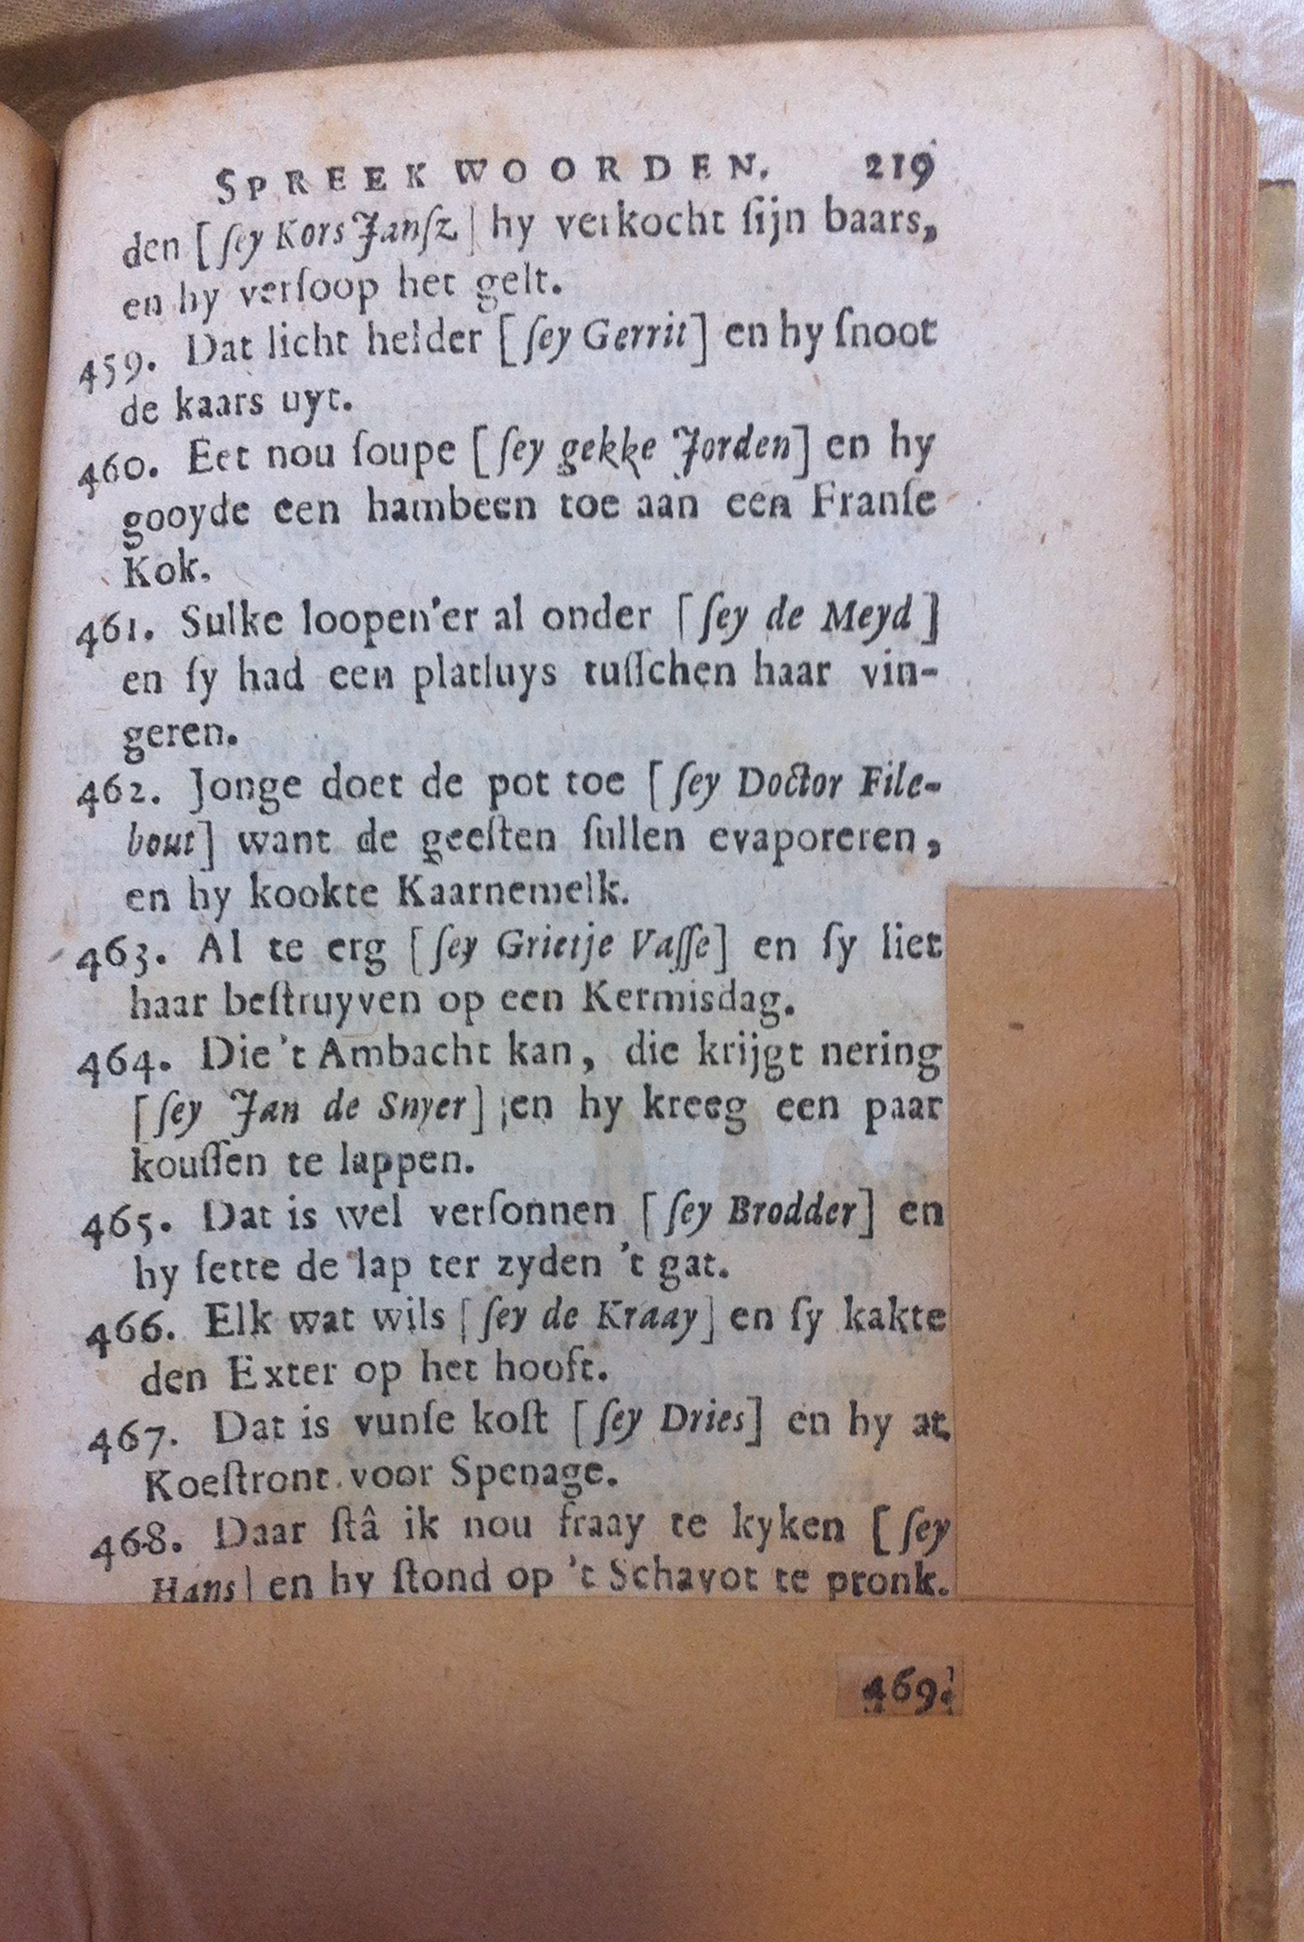 SPREEKWOORDEN. 219
den [ſey Kors Janſz] hy verkocht ſijn baars,
en hy verſoop het gelt.
459. Dat licht helder [ſey Gerrit] en hy ſnoot
de kaars uyt.
460. Eet nou ſoupe [ſey gekke Jorden] en hy
gooyde een hambeen toe aan een Franſe
Kok.
461. Sulke loopen'er al onder [ſey de Meyd]
en ſy had een platluys tuſſchen haar vin-
geren.
462. Jonge doet de pot toe [ſey Doctor File-
bout] want de geeſten ſullen evaporeren,
en hy kookte Kaarnemelk.
463. Al te erg [ſey Grietje Vaſſe] en ſy liet
haar beſtruyven op een Kermisdag.
464. Die 't Ambacht kan, die krijgt nering
[ſey Jan de Snyer] en hy kreeg een paar
kouſſen te lappen.
465. Dat is wel verſonnen [ſey Brodder] en
hy ſette de lap ter zyden 't gat.
466. Elk wat wils [ſey de Kraay] en ſy kakte
den Exter op het hooft.
467. Dat is vunſe koſt [ſey Dries] en hy at
Koeſtront voor Spenage.
468. Daar ſtâ ik nou fraay te kyken [ſey
Hans] en hy ſtond op 't Schavot te pronk.
469.